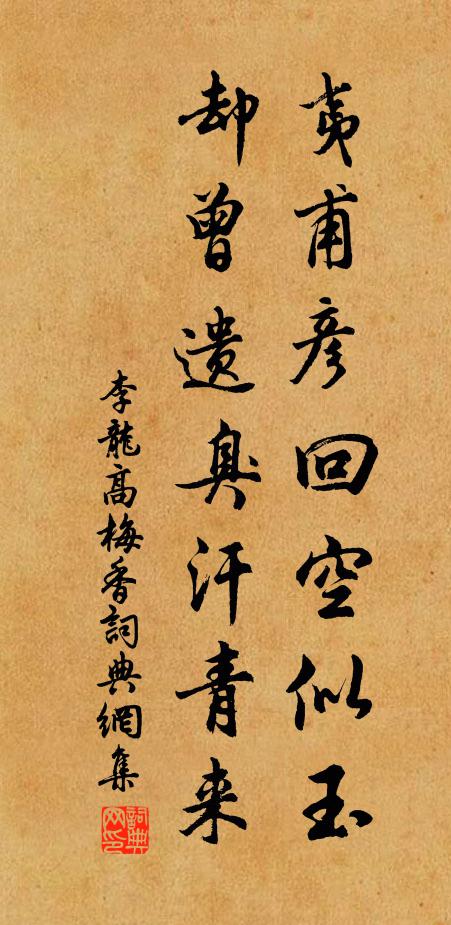 夷甫彦回空似玉
却曾遗臭汗青来
李龍高梅香詞典網集
詞典網印